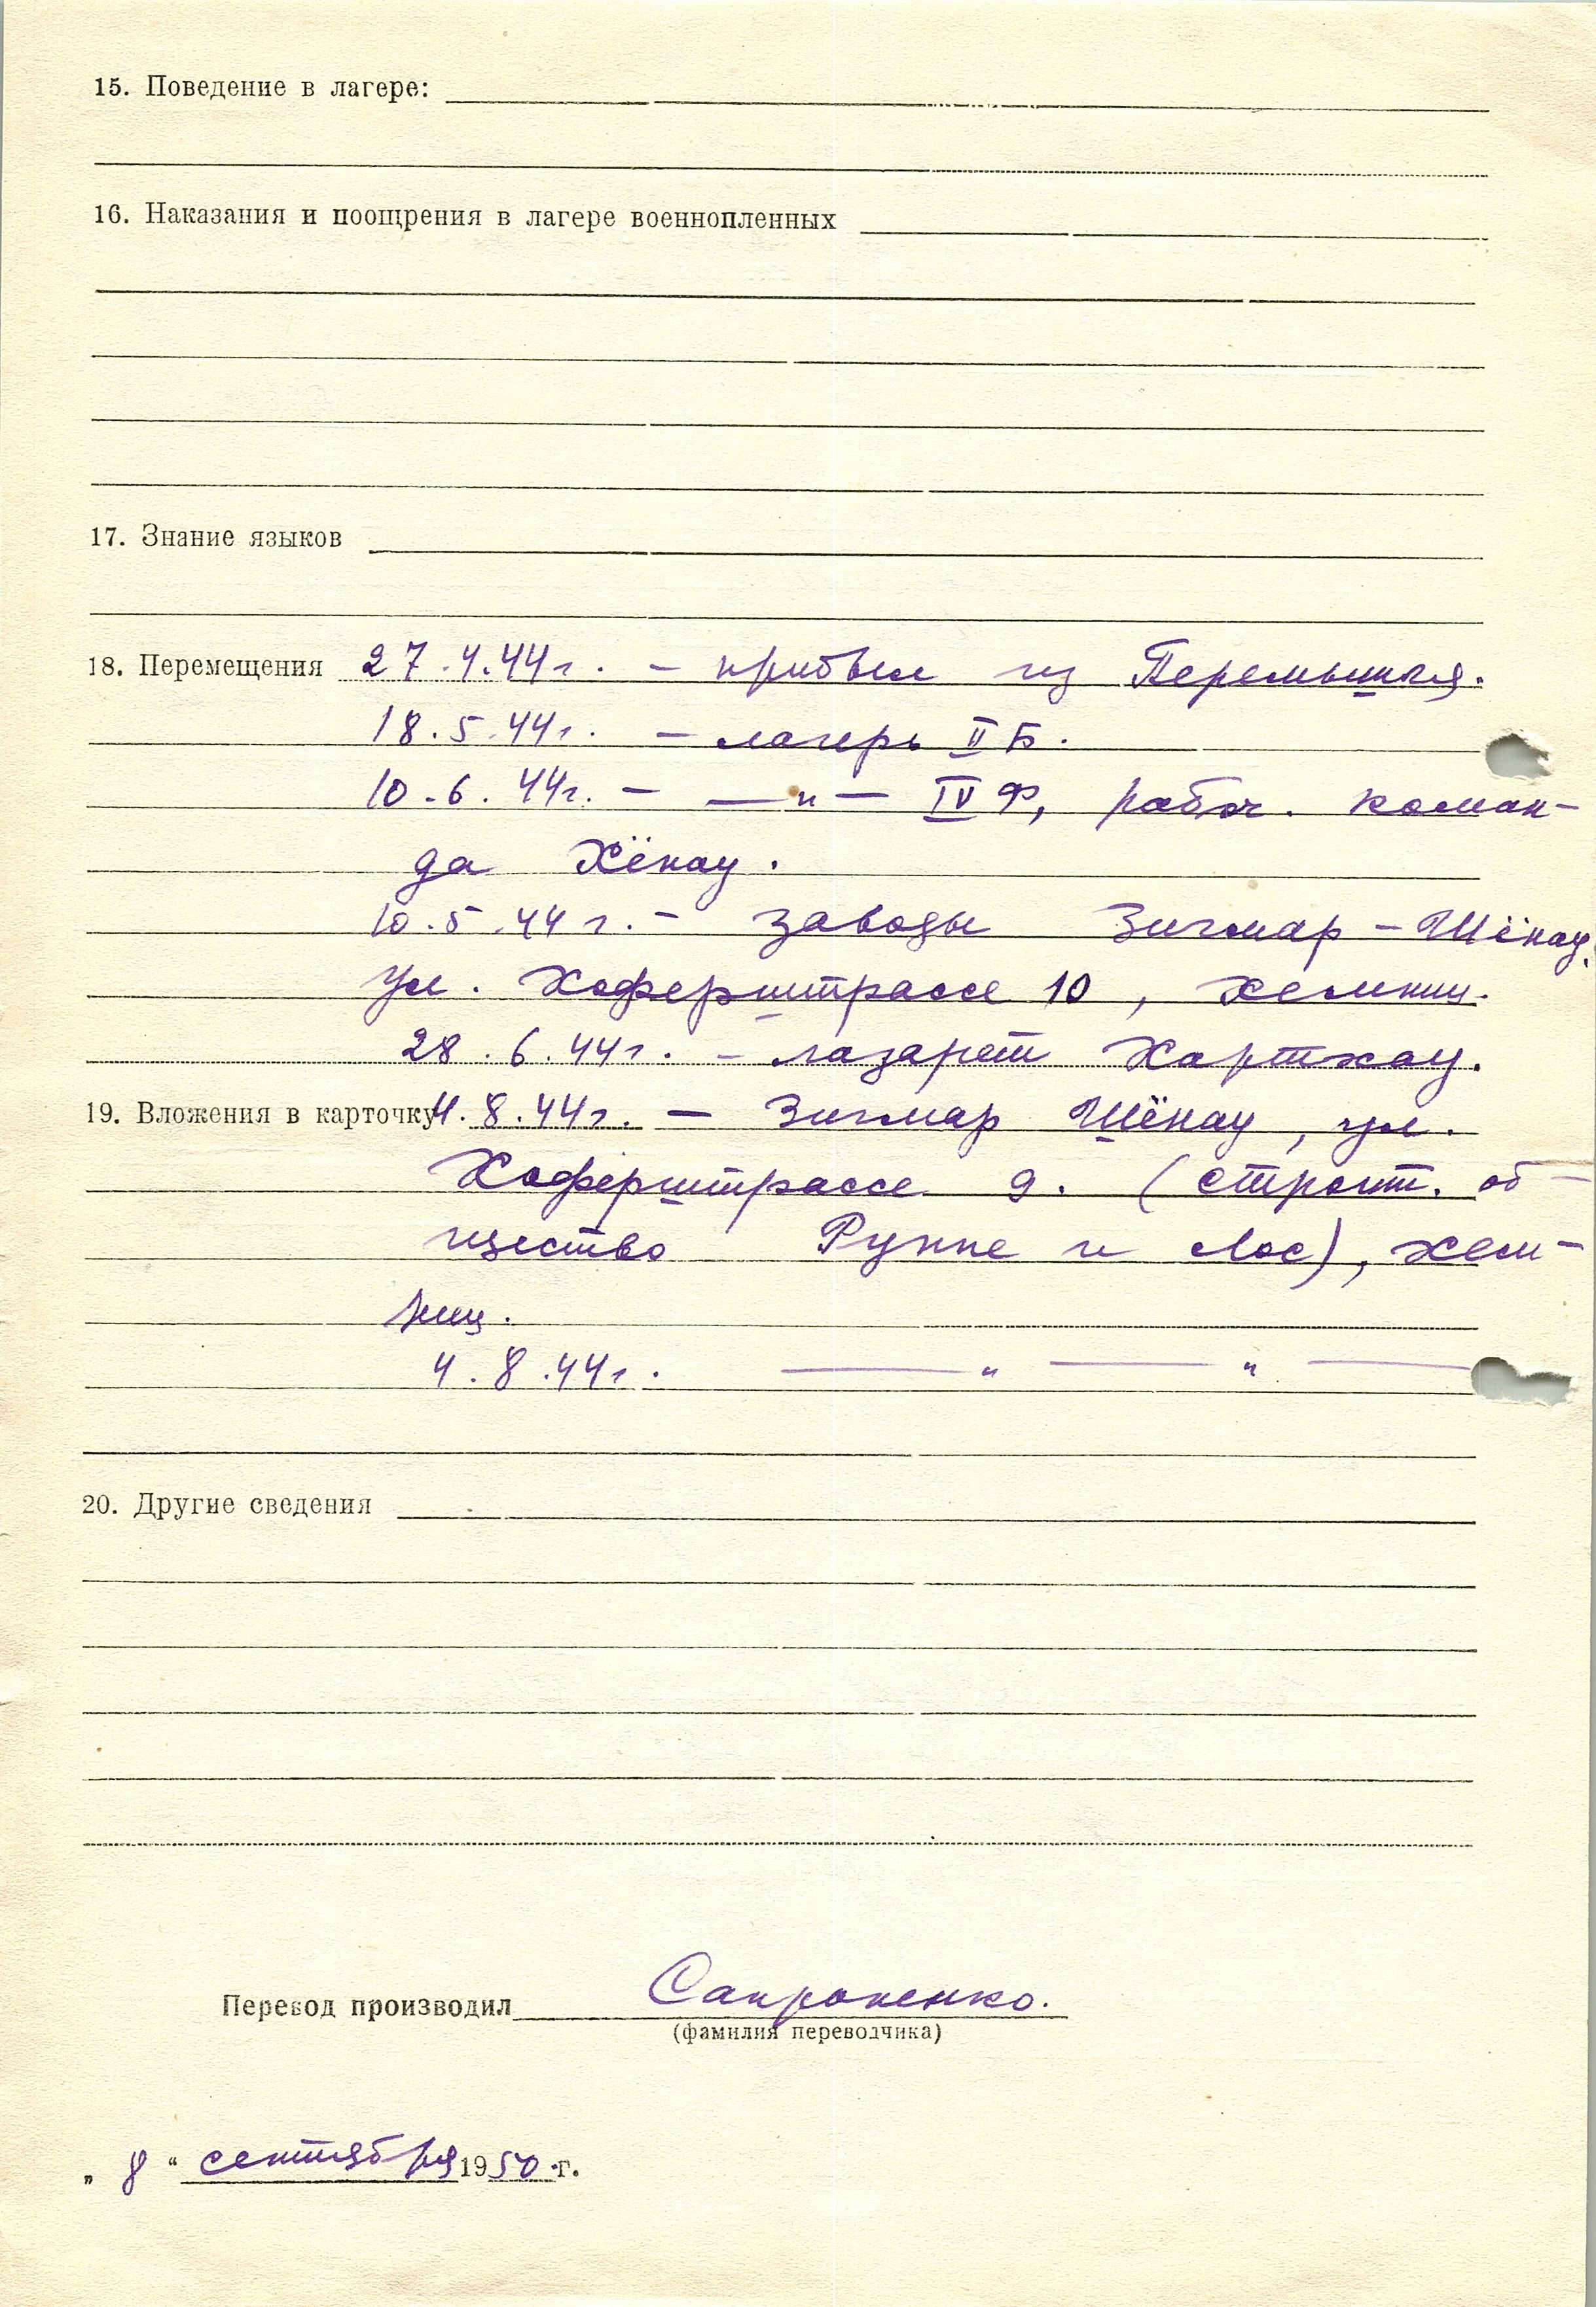 15. Поведение в лагере:
16. Наказания и поощрения в лагере военнопленных
17. Знание языков
18. Перемещения 27.4.44г. – прибыл из Перемышля.
18.5.44г. – лагерь II Б.
10.6.44г. – —"— IV Ф, рабоч. коман-
да Хёнау.
10.5.44г. – заводы Зигмар – Шёнау,
ул. Хоферштрассе 10, Хемниц.
28.6.44г. – лазарет Хартхау.
19. Вложения в карточку 4.8.44г. – Зигмар Шёнау, ул.
Хоферштрассе 9. (строит. об-
щество Рунне и Лос), Хем-
ниц.
4.8.44г. —"—"—
20. Другие сведения
Перевод производил Сапроненко.
(фамилия переводчика)
„ 8 “ сентября 1950.г.